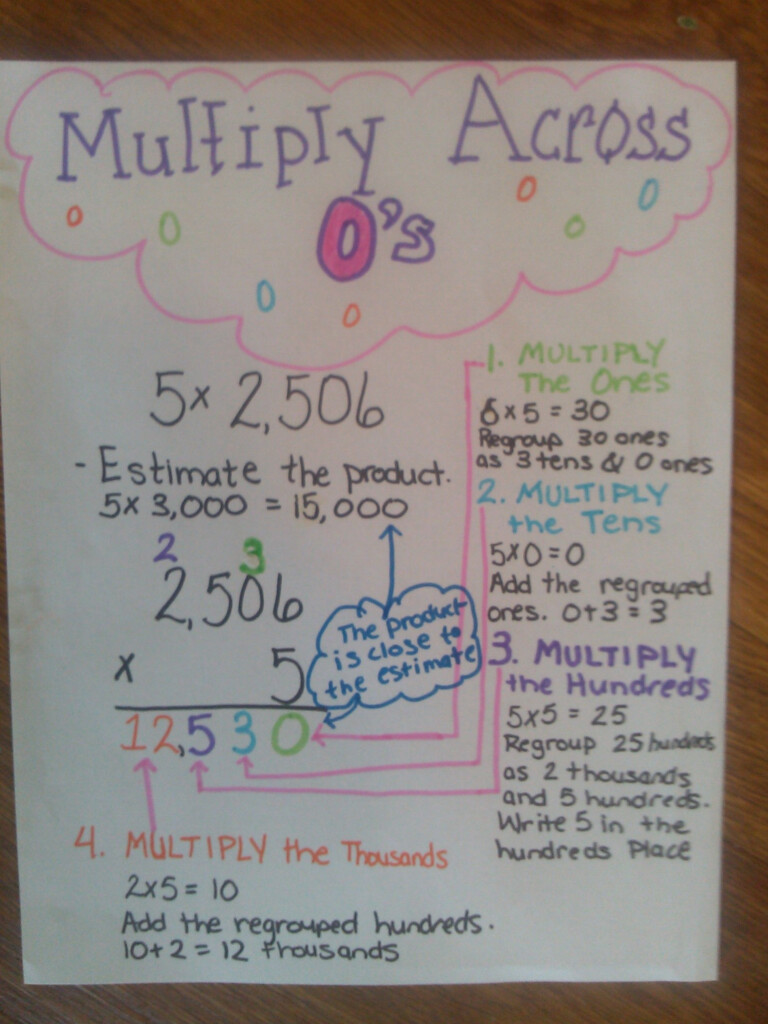 Multiply Across
0's
0 0 0 0 0 0 0
5 x 2,506
- Estimate the product.
5 x 3,000 = 15,000
2 3
2,506
x 5
12,530
The product
is close to
the estimate
1. MULTIPLY
The Ones
6 x 5 = 30
Regroup 30 ones
as 3 tens & 0 ones
2. MULTIPLY
the Tens
5 x 0 = 0
Add the regrouped
ones. 0 + 3 = 3
3. MULTIPLY
the Hundreds
5 x 5 = 25
Regroup 25 hundreds
as 2 thousands
and 5 hundreds.
Write 5 in the
hundreds Place
4. MULTIPLY the Thousands
2 x 5 = 10
Add the regrouped hundreds.
10 + 2 = 12 thousands